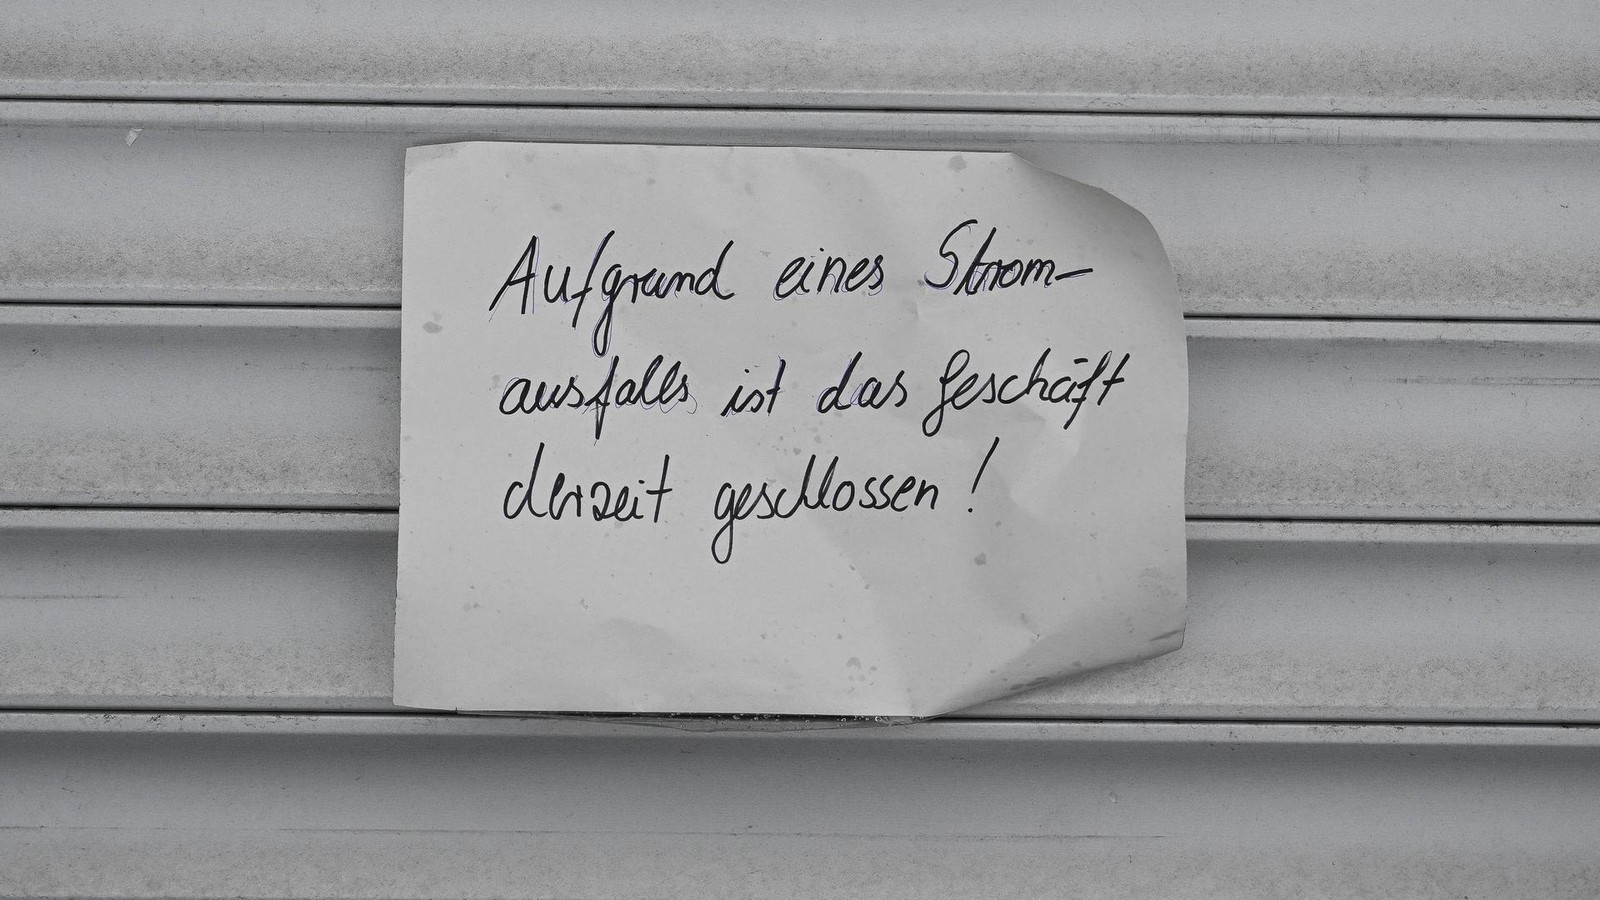 Aufgrund eines Strom-
ausfalls ist das Geschäft
derzeit geschlossen!